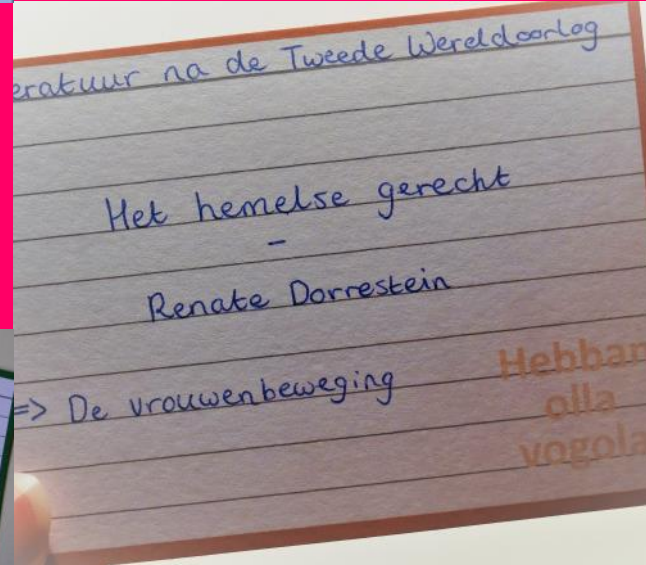 eratuur na de Tweede Wereldoorlog
Het hemelse gerecht
-
Renate Dorrestein
=> De vrouwenbeweging
Hebban
olla
vogola